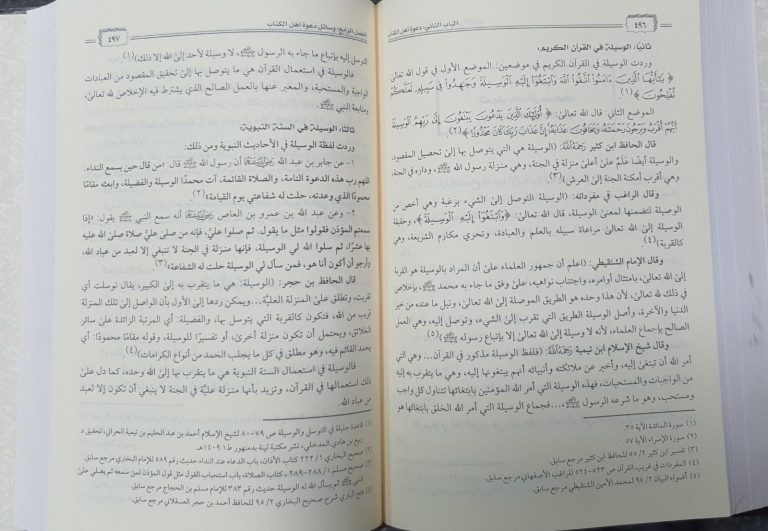 ٤٩٦
الباب الثاني: دعوة أهل الكتاب
ثانيا: الوسيلة في القرآن الكريم:
وردت الوسيلة في القرآن الكريم في موضعين: الموضع الأول في قول الله تعالى
﴿ يَٰٓأَيُّهَا ٱلَّذِينَ ءَامَنُوا۟ ٱتَّقُوا۟ ٱللَّهَ وَٱبْتَغُوٓا۟ إِلَيْهِ ٱلْوَسِيلَةَ وَجَٰهِدُوا۟ فِى سَبِيلِهِۦ لَعَلَّكُمْ
تُفْلِحُونَ ﴾(١).
الموضع الثاني: قال الله تعالى: ﴿ أُو۟لَٰٓئِكَ ٱلَّذِينَ يَدْعُونَ يَبْتَغُونَ إِلَىٰ رَبِّهِمُ ٱلْوَسِيلَةَ
أَيُّهُمْ أَقْرَبُ وَيَرْجُونَ رَحْمَتَهُۥ وَيَخَافُونَ عَذَابَهُۥٓ إِنَّ عَذَابَ رَبِّكَ كَانَ مَحْذُورًا ﴾(٢).
قال الحافظ ابن كثير رَحِمَهُ ٱللَّهُ: (الوسيلة هي التي يتوصل بها إلى تحصيل المقصود،
والوسيلة أيضًا عَلَمٌ علىٰ أعلىٰ منزلة في الجنة، وهي منزلة رسول الله ﷺ، وداره في الجنة،
وهي أقرب أمكنة الجنة إلى العرش)(٣).
وقال الراغب في مفرداته: (الوسيلة التوصل إلى الشيء برغبة وهي أخص من
الوصيلة لتضمنها لمعنىٰ الوسيلة، قال الله تعالىٰ: ﴿وَٱبْتَغُوٓا۟ إِلَيْهِ ٱلْوَسِيلَةَ﴾، وحقيقة
الوسيلة إلىٰ الله تعالىٰ مراعاة سبيله بالعلم والعبادة، وتحري مكارم الشريعة، وهي
كالقربة)(٤).
وقال الإمام الشنقيطي: (اعلم أن جمهور العلماء علىٰ أن المراد بالوسيلة هو القربة
إلىٰ الله تعالىٰ، بامتثال أوامره، واجتناب نواهيه، علىٰ وفق ما جاء به محمد ﷺ بإخلاص
في ذلك لله تعالىٰ، لأن هذا وحده هو الطريق الموصلة إلى الله تعالىٰ، ونيل ما عنده من خير
الدنيا والآخرة، وأصل الوسيلة الطريق التي تقرب إلى الشيء، وتوصل إليه، وهي العمل
الصالح بإجماع العلماء، لأنه لا وسيلة إلىٰ الله تعالىٰ إلا بإتباع رسوله ﷺ)(٥)
وقال شيخ الإسلام ابن تيمية رَحِمَهُ ٱللَّهُ: (فلفظ الوسيلة مذكور في القرآن... وهي التي
أمر الله أن تبتغىٰ إليه، وأخبر عن ملائكته وأنبيائه أنهم يبتغونها إليه، وهي ما يتقرب به إليه
من الواجبات والمستحبات، فهذه الوسيلة التي أمر الله المؤمنين بابتغائها تتناول كل واجب
ومستحب، وهو ما شرعه الرسول ﷺ،...فجماع الوسيلة التي أمر الله الخلق بابتغائها هو
(١) سورة المائدة الآية ٣٥.
(٢) سورة الإسراء الآية ٥٧.
(٣) تفسير ابن كثير ٢/ ٥٥ للحافظ ابن كثير مرجع سابق.
(٤) المفردات في غريب القرآن ص ٥٢٣-٥٢٤ للراغب الأصفهاني مرجع سابق.
(٥) أضواء البيان ٢/ ٩٧ لمحمد الأمين الشنقيطي مرجع سابق.
الفصل الرابع: وسائل دعوة أهل الكتاب
٤٩٧
التوسل إليه بإتباع ما جاء به الرسول ﷺ، لا وسيلة لأحد إلىٰ الله إلا ذلك)(١)
فالوسيلة في استعمال القرآن هي ما يتوصل بها إلىٰ تحقيق المقصود من العبادات
الواجبة والمستحبة، والمعبر عنها بالعمل الصالح الذي يشترط فيه الإخلاص لله تعالىٰ،
ومتابعة النبي ﷺ.
ثالثا: الوسيلة في السنة النبوية:
وردت لفظة الوسيلة في الأحاديث النبوية ومن ذلك:
١- عن جابر بن عبد الله أن رسول الله ﷺ قال: «من قال حين يسمع النداء:
اللهم رب هذه الدعوة التامة، والصلاة القائمة، آت محمدًا الوسيلة والفضيلة، وابعثه مقامًا
محمودًا الذي وعدته، حلت له شفاعتي يوم القيامة»(٢)
٢- وعن عبد الله بن عمرو بن العاص أنه سمع النبي ﷺ يقول: «إذا
سمعتم المؤذن فقولوا مثل ما يقول. ثم صلوا عليّ، فإنه من صلىٰ عليّ صلاة صلىٰ الله عليه
بها عشرًا، ثم سلوا الله لي الوسيلة، فإنها منزلة في الجنة لا تنبغي إلا لعبد من عباد الله،
وأرجو أن أكون أنا هو، فمن سأل لي الوسيلة حلت له الشفاعة»(٣)
قال الحافظ بن حجر: (الوسيلة: هي ما يتقرب به إلىٰ الكبير، يقال توسلت أي
تقربت، وتطلق علىٰ المنزلة العلية...ويمكن ردها إلىٰ الأول بأن الواصل إلىٰ تلك المنزلة
قريب من الله، فتكون كالقربة التي يتوسل بها، والفضيلة: أي المرتبة الزائدة علىٰ سائر
الخلائق، ويحتمل أن تكون منزلة أخرىٰ، أو تفسيرًا للوسيلة، وقوله مقامًا محمودًا: أي
يحمد القائم فيه، وهو مطلق في كل ما يجلب الحمد من أنواع الكرامات)(٤).
فالوسيلة في استعمال السنة النبوية هي ما يتقرب بها إلىٰ الله وحده، كما دل علىٰ
ذلك استعمالها في القرآن، وتزيد بأنها منزلة عليَّة في الجنة لا ينبغي أن تكون إلا لعبد
من عباد الله.
(١) قاعدة جليلة في التوسل والوسيلة ص ٧٩-٨٠ لشيخ الإسلام أحمد بن عبد الحليم بن تيمية الحراني، تحقيق د.
ربيع بن هادي المدخلي، نشر مكتبة لينة بدمنهور ط١ ١٤٠٩هـ.
(٢) صحيح البخاري ١/ ٢٢٢ كتاب الأذان، باب الدعاء عند النداء حديث رقم ٥٨٩ للإمام البخاري مرجع سابق.
(٣) صحيح مسلم ١/ ٢٨٨-٢٨٩ كتاب الصلاة، باب استحباب القول مثل قول المؤذن لمن سمعه ثم يصلي علىٰ
النبي ﷺ ثم يسأل الله له الوسيلة حديث رقم ٣٨٣ للإمام مسلم بن الحجاج مرجع سابق.
(٤) فتح الباري شرح صحيح البخاري ٢/ ٩٥ للحافظ أحمد بن حجر العسقلاني مرجع سابق.